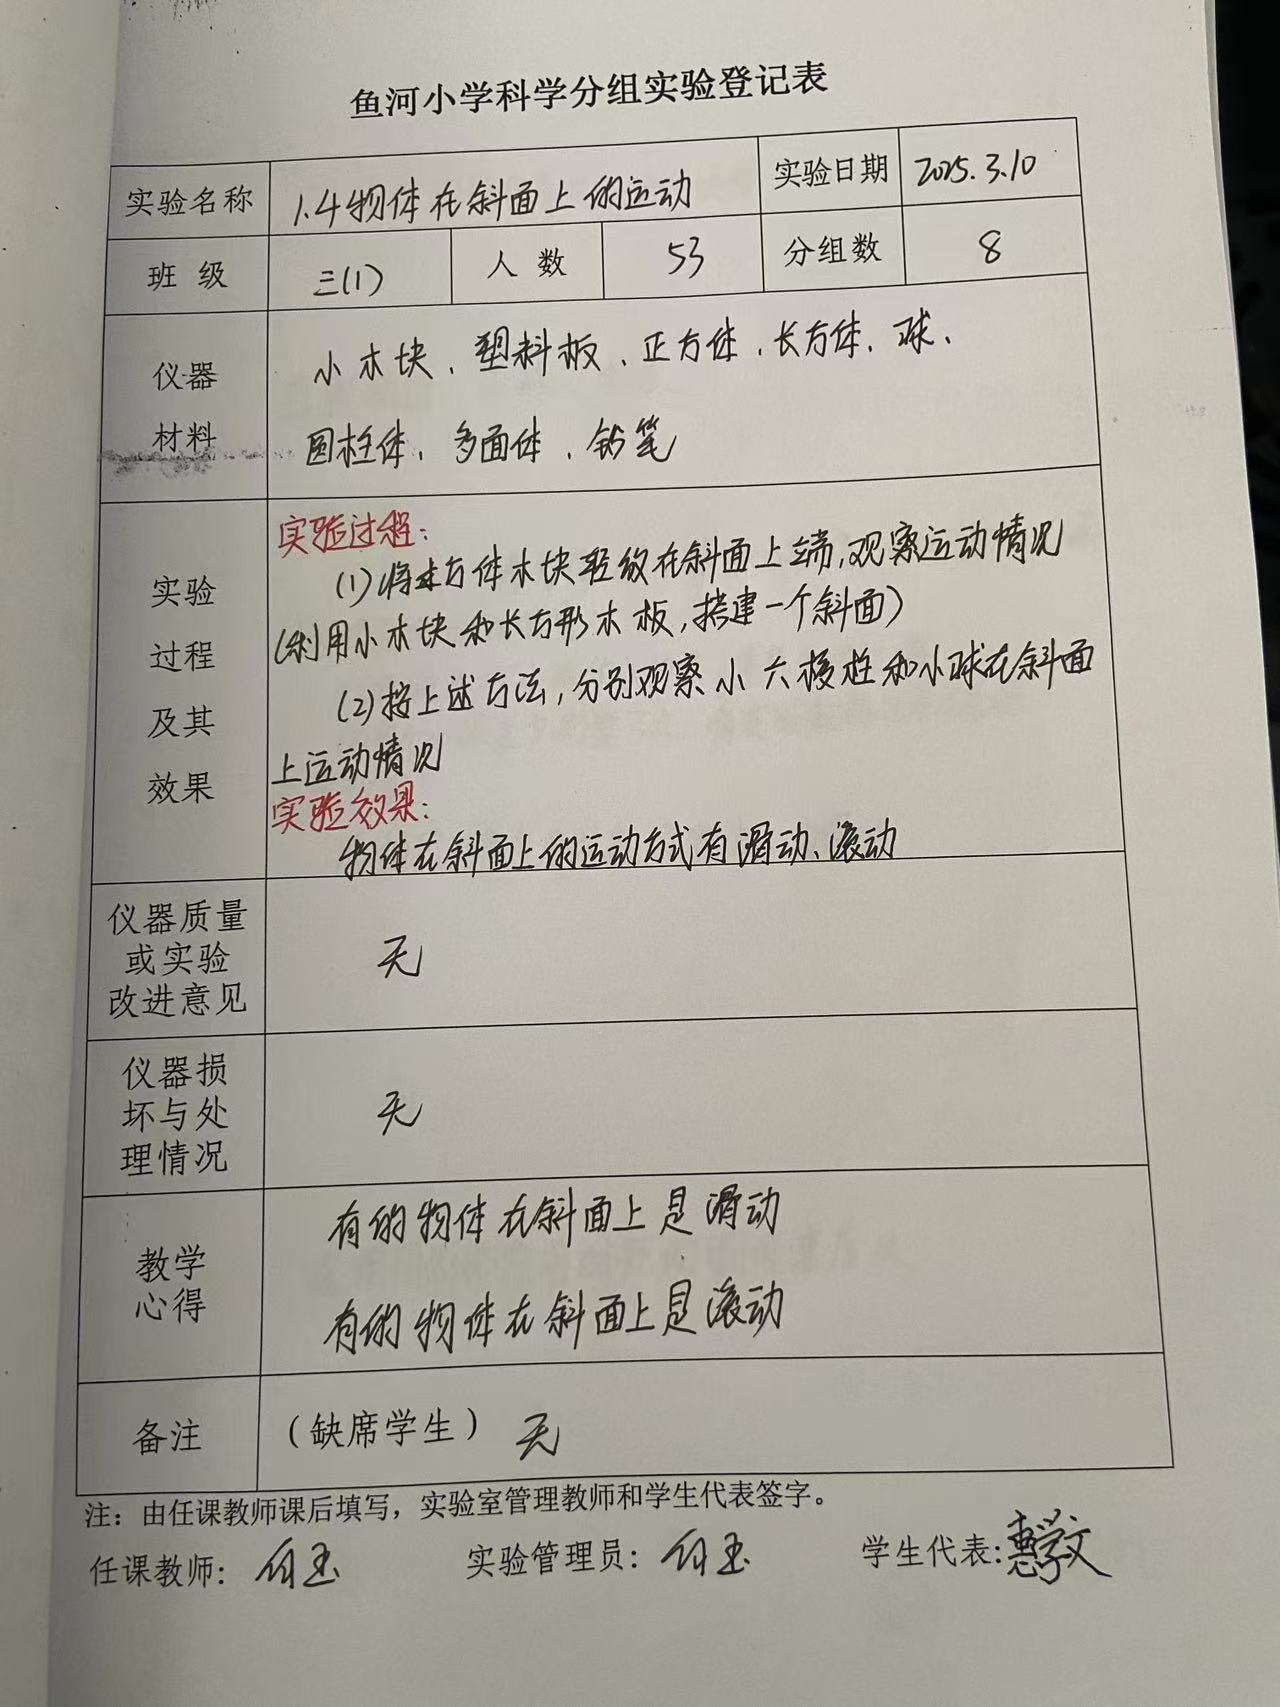 鱼河小学科学分组实验登记表
实验名称 1.4物体在斜面上的运动 实验日期 2025.3.10
班 级 三(1) 人 数 53 分组数 8
仪器 小木块、塑料板、正方体、长方体、球、
材料 圆柱体、多面体、铅笔
实验过程:
实验 (1)将方体木块轻放在斜面上端,观察运动情况
过程 (利用小木块和长方形木板,搭建一个斜面)
及其 (2)按上述方法,分别观察小六棱柱和小球在斜面
效果 上运动情况
实验效果:
物体在斜面上的运动方式有滑动、滚动
仪器质量
或实验 无
改进意见
仪器损
坏与处 无
理情况
教学 有的物体在斜面上是滑动
心得 有的物体在斜面上是滚动
备注 （缺席学生） 无
注：由任课教师课后填写，实验室管理教师和学生代表签字。
任课教师: 玉 实验管理员: 玉 学生代表:惠学文